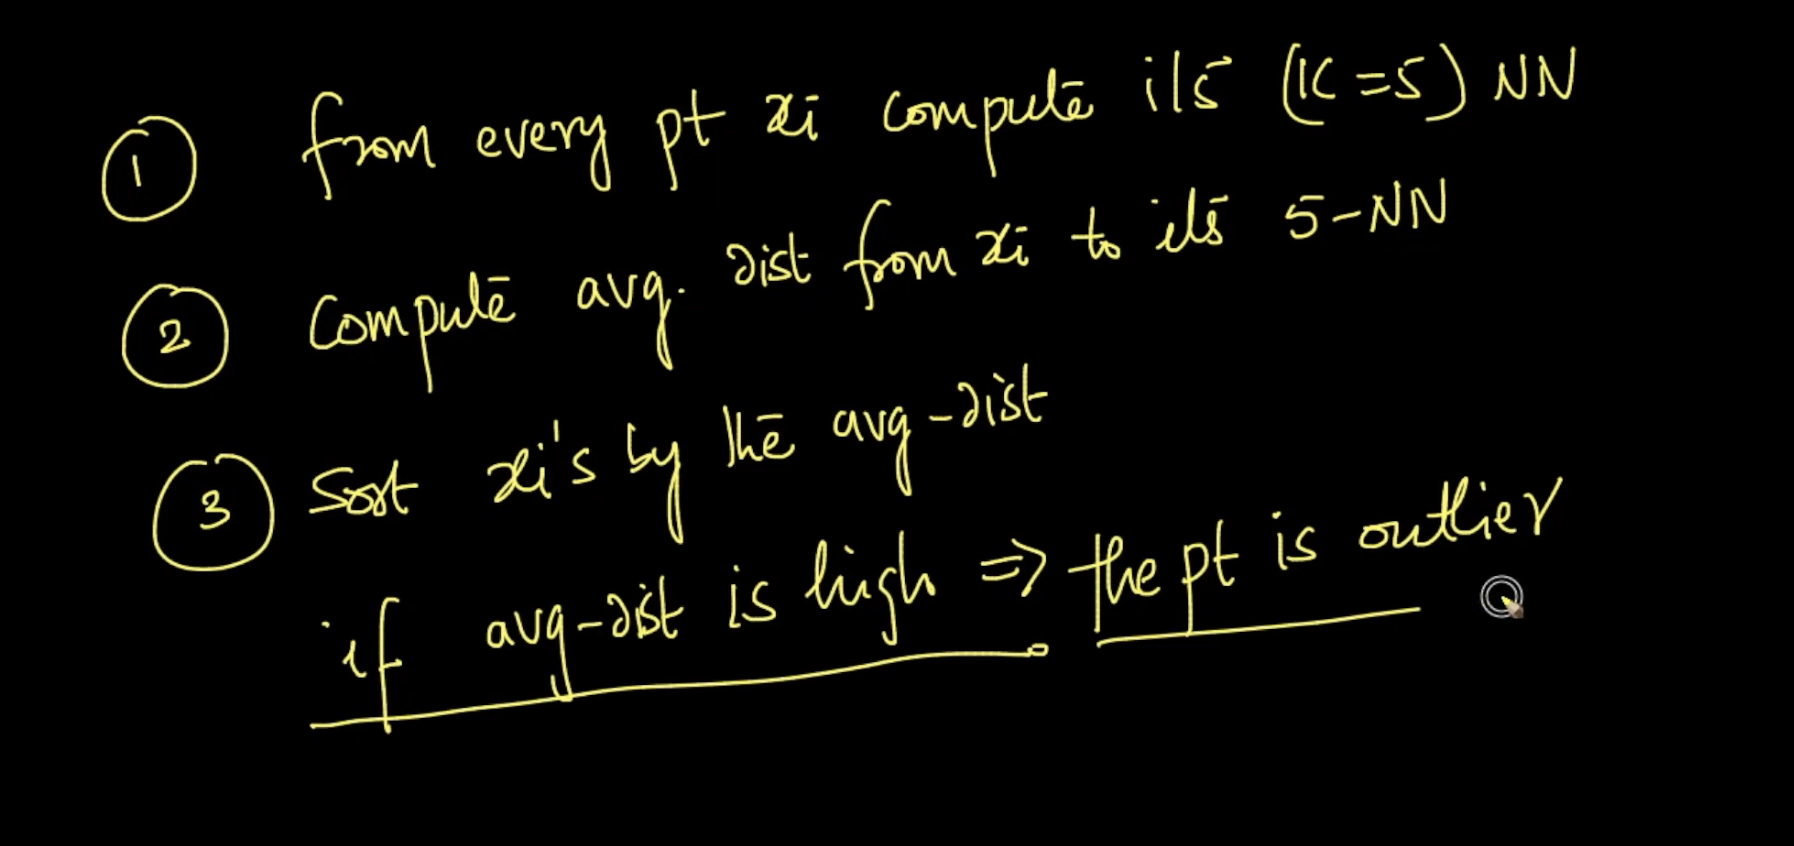 ① from every pt xi compute its (K=5) NN
② Compute avg. dist from xi to its 5-NN
③ Sort xi's by the avg-dist
if avg-dist is high ⇒ the pt is outlier